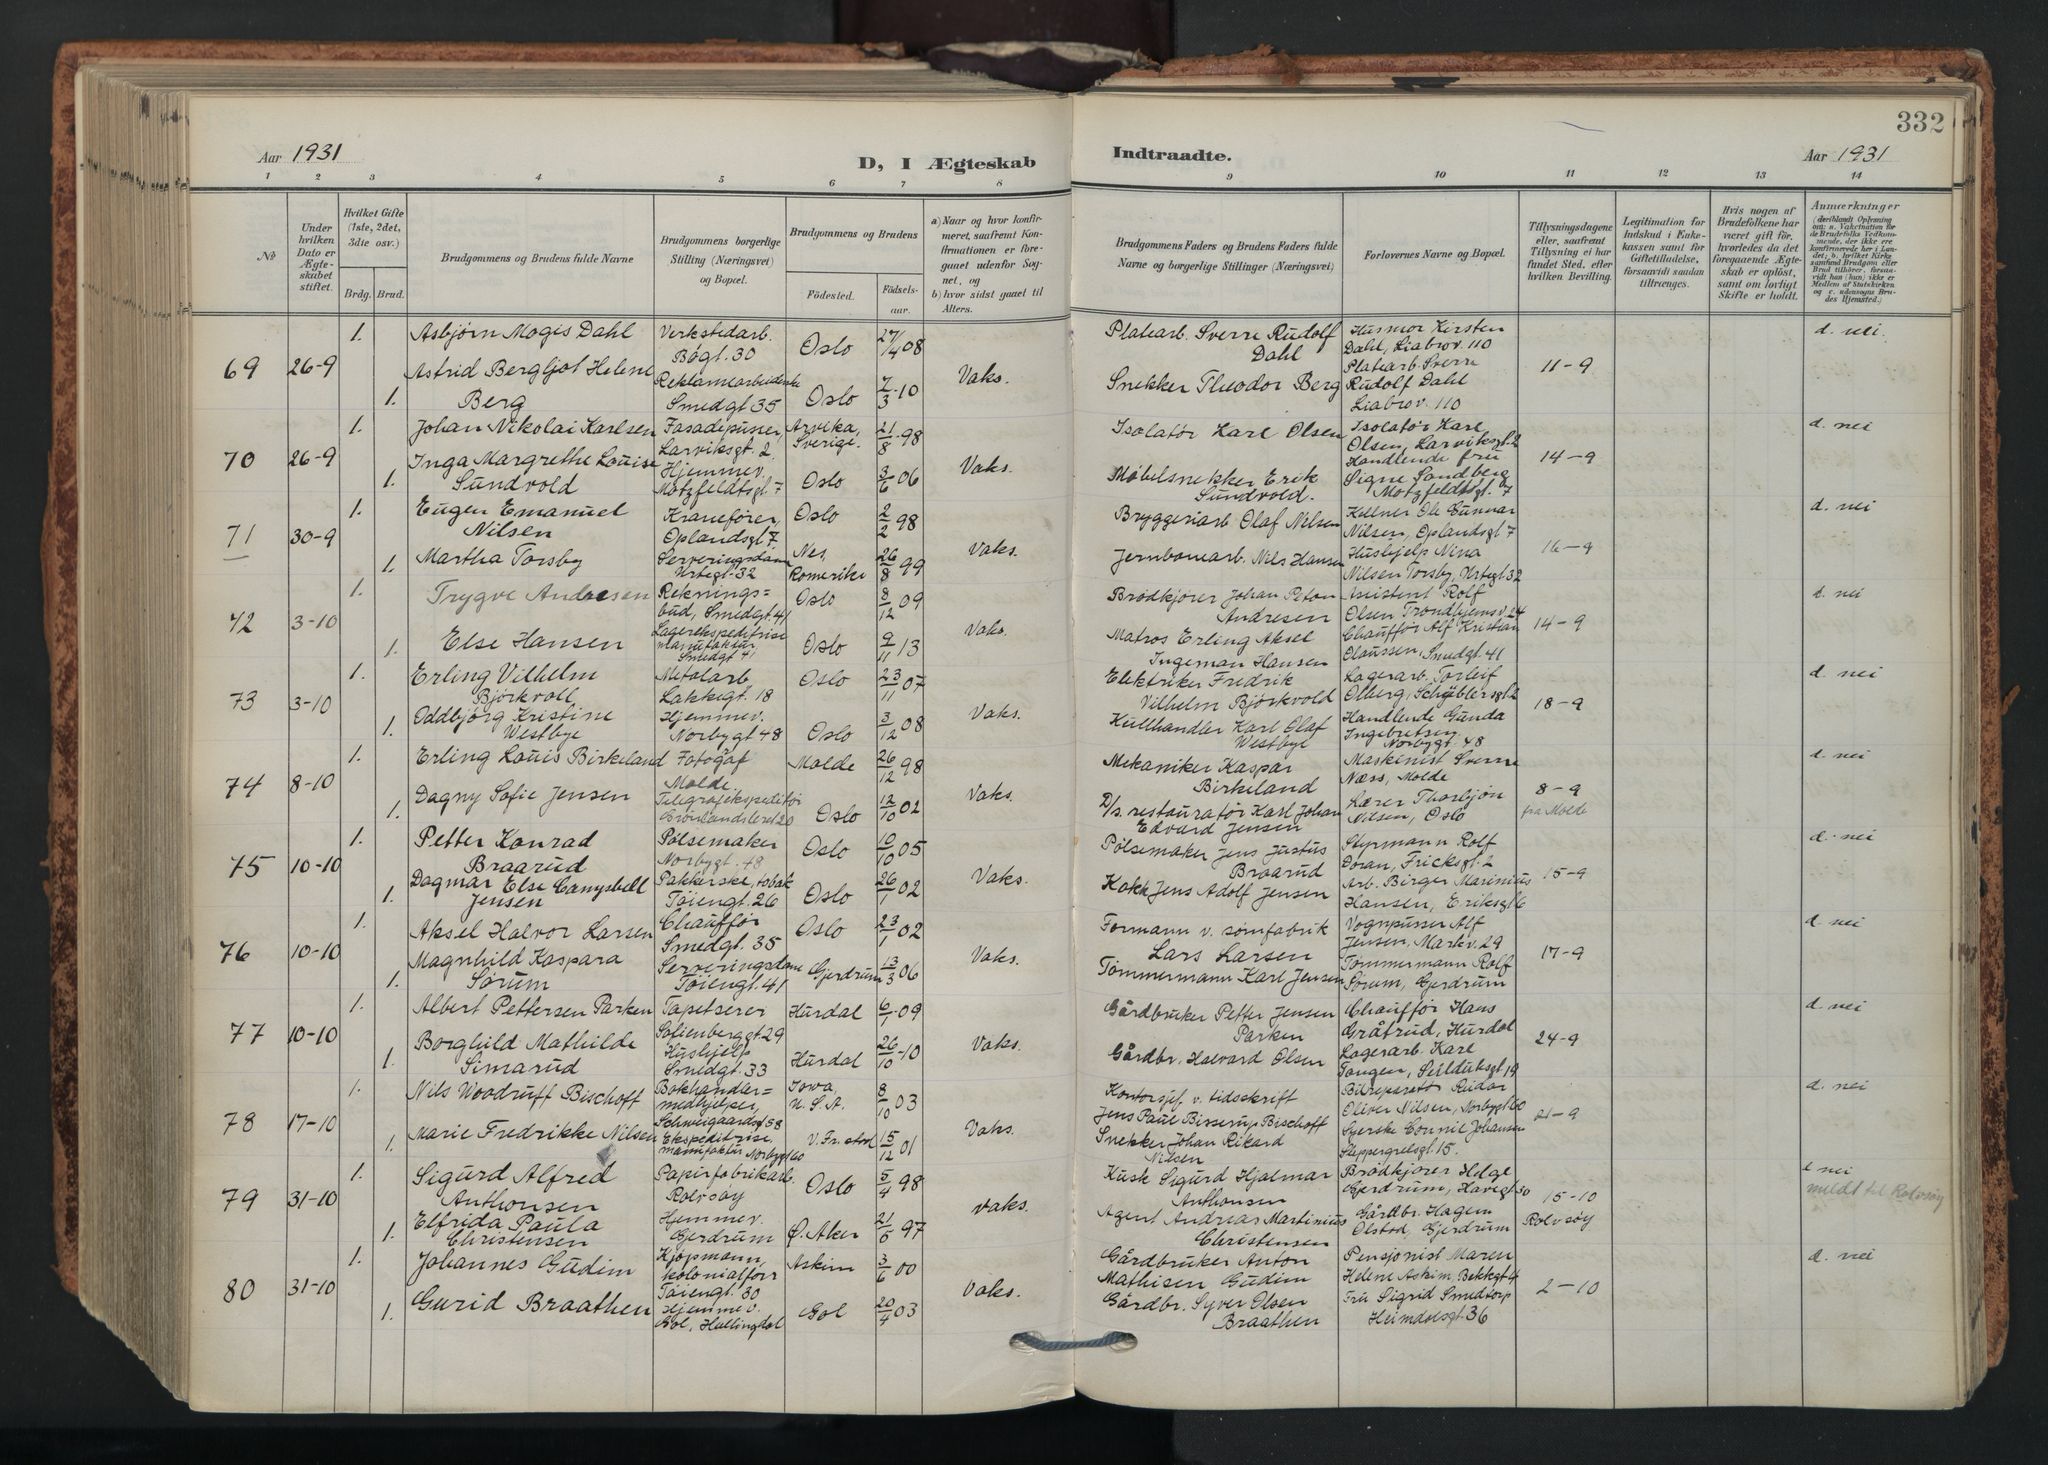 332
Aar 1931
D, I Ægteskab
Indtraadte.
Aar 1931
1 2 3 4 5 6 7 8 9 10 11 12 13 14
№
Under hvilken Dato er Ægteskabet stiftet.
Hvilket Gifte (1ste, 2det, 3die osv.)
Brdg. Brud.
Brudgommens og Brudens fulde Navne
Brudgommens borgerlige Stilling (Næringsvei) og Bopæl.
Brudgommens og Brudens
Födested. Födsels-aar.
a) Naar og hvor konfirmeret, saafremt Konfirmationen er foregaaet udenfor Sognet, og
b) hvor sidst gaaet til Alters.
Brudgommens Faders og Brudens Faders fulde Navne og borgerlige Stillinger (Næringsvei)
Forlovernes Navne og Bopæl.
Tillysningsdagene eller, saafremt Tillysning ei har fundet Sted, efter hvilken Bevilling.
Legitimation for Indskud i Enkekassen samt for Giftetilladelse, forsaavidt saadan tiltrænges.
Hvis nogen af Brudefolkene har været gift før, hvorledes da det foregaaende Ægteskab er oplöst, samt om lovligt Skifte er holdt.
Anmærkninger
(deriblandt Oplysning om: a. Vakcination for de Brudefolks Vedkommende, der ikke ere konfirmerede her i Landet; b. hvilket Kirkesamfund Brudgom eller Brud tilhörer, forsaavidt han (hun) ikke er Medlem af Statskirken og c. udensogns Brudes Hjemsted.)
69 26-9
1. Asbjørn Mogis Dahl Verkstedarb. Bøgt. 30 Oslo 27/4 08
1. Astrid Bergljot Helene Berg Reklamearbeiderske Smedgt 35 Oslo 7/3-10
Vaks.
Platearb. Sverre Rudolf Dahl
Snekker Theodor Berg
Husmor Kirsten Dahl, Liabrov. 110
Platearb. Sverre Rudolf Dahl Liabrov. 110
11-9
d. nei.
70 26-9
1. Johan Nikolai Karlsen Fasadepusser, Larviksgt. 2. Arvika, Sverige. 21/8-98
1. Inga Margrethe Louise Sundvold Hjemmev. Motzfeldtsgt 7 Oslo 3/6 06
Vaks.
Isolatør Karl Olsen
Møbelsnekker Erik Sundvold.
Isolatør Karl Olsen, Larviksgt. 2
Handlende fru Signe Sandberg Motzfeldtsgt. 7
14-9
d. nei
71 30-9
1. Eugen Emanuel Nilsen Kranefører, Oplandsgt 7. Oslo 2/2 98
1. Martha Torsby Serveringsdame Urtegt. 32 Nes, Romerike 26/8 99
Vaks.
Bryggeriarb Olaf Nilsen
Jernbanearb. Nils Hansen
Kellner Ole Gunnar Nilsen, Oplandsgt 7
Hushjelp Nina Nilsen Torsby, Urtegt 32
16-9
d. nei
72 3-10
1. Trygve Andresen Reknings=bud, Smedgt. 41 Oslo 8/12 09
1. Else Hansen Lagerekspeditrise manufaktur Smedgt 41 Oslo 9/11 13
Vaks.
Brødkjører Johan Andresen
Matros Erling Aksel Ingeman Hansen
Assistent Rolf Olsen Trondhjemsv. 24
Chauffør Alf Kristian Olaussen, Smedgt. 41
14-9
d. nei
73 3-10
1. Erling Vilhelm Bjørkvoll Metalarb Lakkegt. 18 Oslo 23/11 07
1. Oddbjørg Kristine Westbye Hjemmev. Norbygt 48 Oslo 3/12 08
Vaks.
Elektriker Fredrik Vilhelm Bjørkvold
Kullhandler Karl Olaf Westbye
Lagerarb. Torleif Olberg, Schüblersgt 2
Handlende Gunda Ingebretsen Norbygt. 48
18-9
d. nei
74 8-10
1. Erling Louis Birkeland Fotograf Molde Molde 26/12 98
1. Dagny Sofie Jensen Telegrafekspeditør Grønlandsleret 20 Oslo 12/10 02
Vaks.
Mekaniker Kaspar Birkeland
D/s. restauratør Karl Johan Edvard Jensen
Maskinist Sverre Næss, Molde
Lærer Thorbjøn Nilsen, Oslo
8-9
fra Molde
d. nei
75 10-10
1. Petter Konrad Braarud Pølsemaker Norbygt. 48 Oslo 10/10 05
1. Dagmar Else Campbell Jensen Pakkerske, tobak Tøiengt. 26 Oslo 26/1 02
Vaks.
Pølsemaker Jens Justus Braarud
Kokk Jens Adolf Jensen
Styrmann Rolf Doran, Fricksgt. 2
Arb. Birger Marinius Hansen, Eriksgt 6
15-9
d. nei
76 10-10
1. Aksel Halvor Larsen Chauffør Smedgt. 35 Oslo 23/1 02
1. Magnhild Kaspara Sørum Serveringsdame Tøiengt. 41 Gjerdrum 13/3 06
Vaks.
Formann v. sømfabrik Lars Larsen
Tømmermann Karl Jensen
Vognpusser Alf Jensen, Markv. 29
Tømmermann Rolf Sørum, Gjerdrum
17-9
d. nei
77 10-10
1. Albert Pettersen Parken Tapetserer Sofienberggt. 29 Hurdal 6/1-09
1. Borghild Mathilde Simarud Hushjelp Smedgt. 33 Hurdal 26/10-10
Vaks.
Gårdbruker Petter Jensen Parken
Gårdbr. Halvard Olsen
Chauffør Hans Gråtrud, Hurdal
Lagerarb. Karl Tangen, Seilduksgt 19
24-9
d. nei
78 17-10
1. Nils Woodruff Bischoff Bokhandler=medhjelper, Schweigaardsgt 58 Iowa, U.S.A. 8/10 03
1. Marie Fredrikke Nilsen Ekspeditrise, manufaktur Norbygt 60 V. Fr.stad 15/12 01
Vaks.
Kontorsjef v. tidsskrift Jens Paul Bisserup Bischoff
Snekker Johan Rikard Nilsen
Bilreparatør Reidar Oliver Nilsen, Norbygt 60
Syerske Johansen Steppergrelsgt 15.
21-9
d. nei
79 31-10
1. Sigurd Alfred Anthonsen Papirfabrikarb. Rolvsøy Oslo 5/4 98
1. Elfrida Paula Christensen Hjemmev. Gjerdrum Ø. Aker 21/5 97
Vaks.
Kusk Sigurd Hjalmar Anthonsen
Agent Andreas Martinius Christensen
Brødkjører Helge Gjerdrum, Havegt 50
Gårdbr. Hagen Olstad, Gjerdrum
15-10
Rolvsøy
nei
meldt til Rolvsøy
80 31-10
1. Johannes Gudim Kjøpmann, kolonialforr Tøiengt. 30 Askim 3/6 00
1. Gurid Braathen Hjemmev. Gol, Hallingdal Gol 20/4 03
Vaks.
Gårdbruker Anton Mathisen Gudim
Gårdbr. Syver Olsen Braathen
Pensjonist Maren Helene Askim, Bekkegt 4
Fru Sigrid Smedtorp Heimdalsgt 36
2-10
d. nei